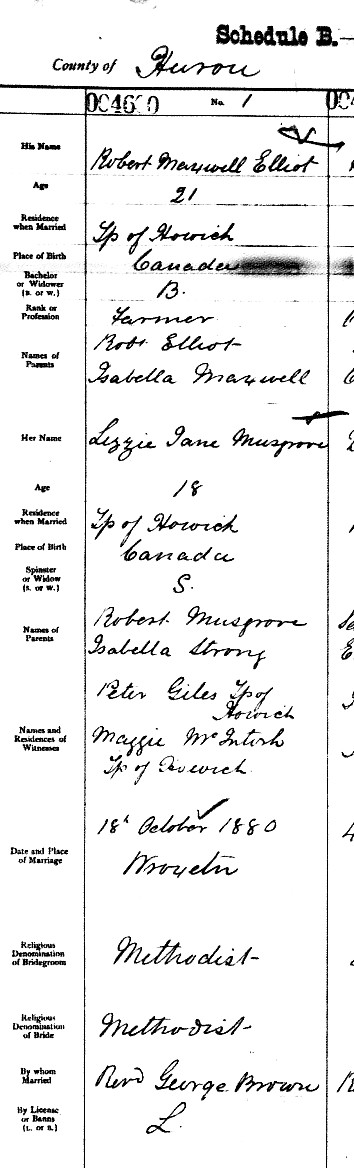 Schedule B.—
County of Huron
No. 1
His Name
Robert Maxwell Elliot
Age
21
Residence
when Married
Tp of Howick
Place of Birth
Canada
Bachelor
or Widower
(B. or W.)
B.
Rank or
Profession
Farmer
Names of
Parents
Robt Elliot
Isabella Maxwell
Her Name
Lizzie Jane Musgrove
Age
18
Residence
when Married
Tp of Howick
Place of Birth
Canada
Spinster
or Widow
(S. or W.)
S.
Names of
Parents
Robert Musgrove
Isabella Strong
Names and
Residences of
Witnesses
Peter Giles Tp of
Howick
Maggie McIntosh
Tp of Howick
Date and Place
of Marriage
18th October 1880
Wroxeter
Religious
Denomination
of Bridegroom
Methodist
Religious
Denomination
of Bride
Methodist
By whom
Married
Revd George Brown
By License
or Banns
(L. or B.)
L.